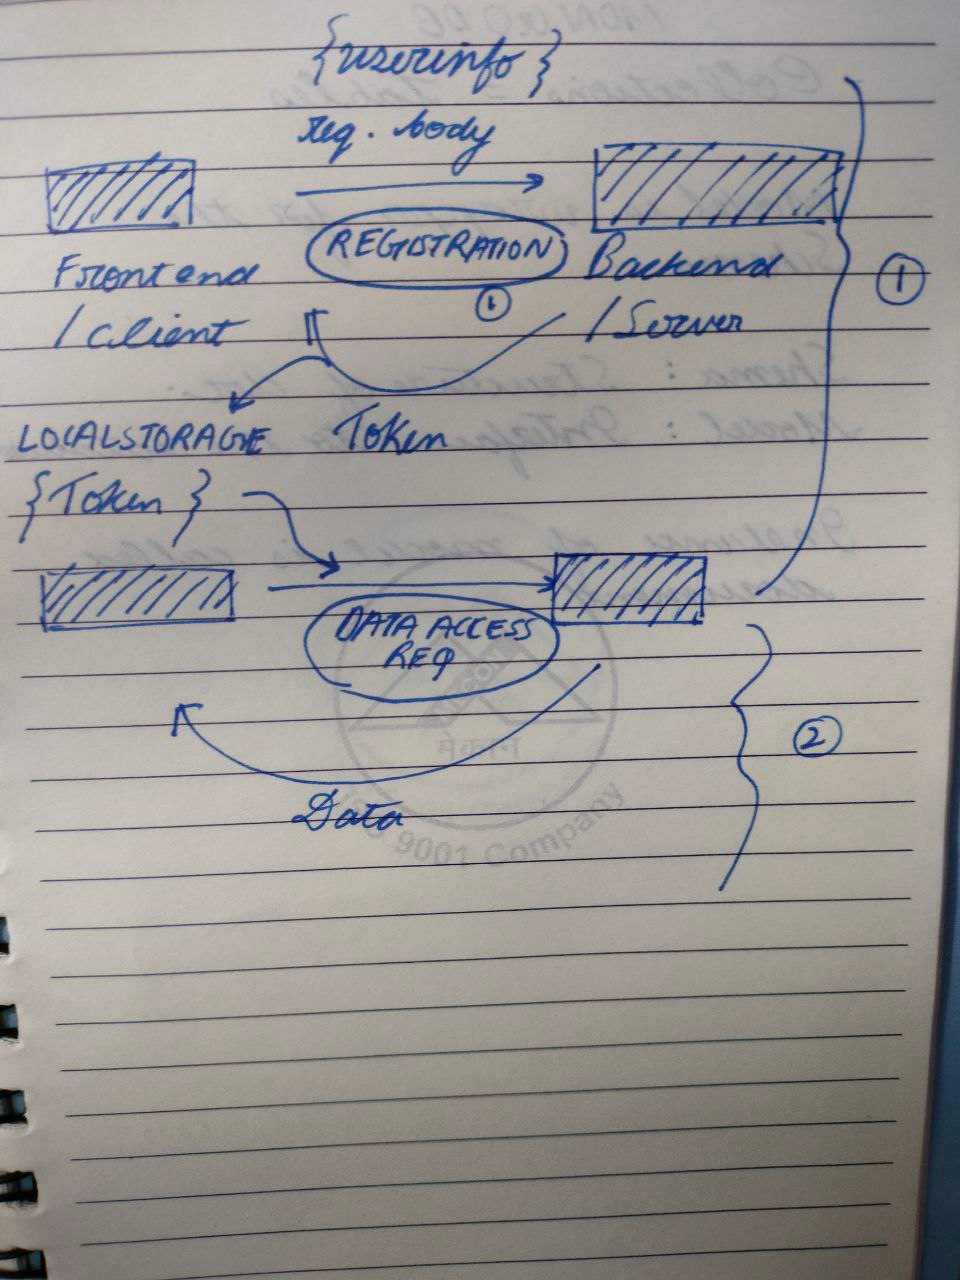 {userinfo}
req. body
REGISTRATION
Frontend
/Client
Backend
/Server
1
1
LOCALSTORAGE
Token
{Token}
DATA ACCESS
REQ
2
Data
9001 Company